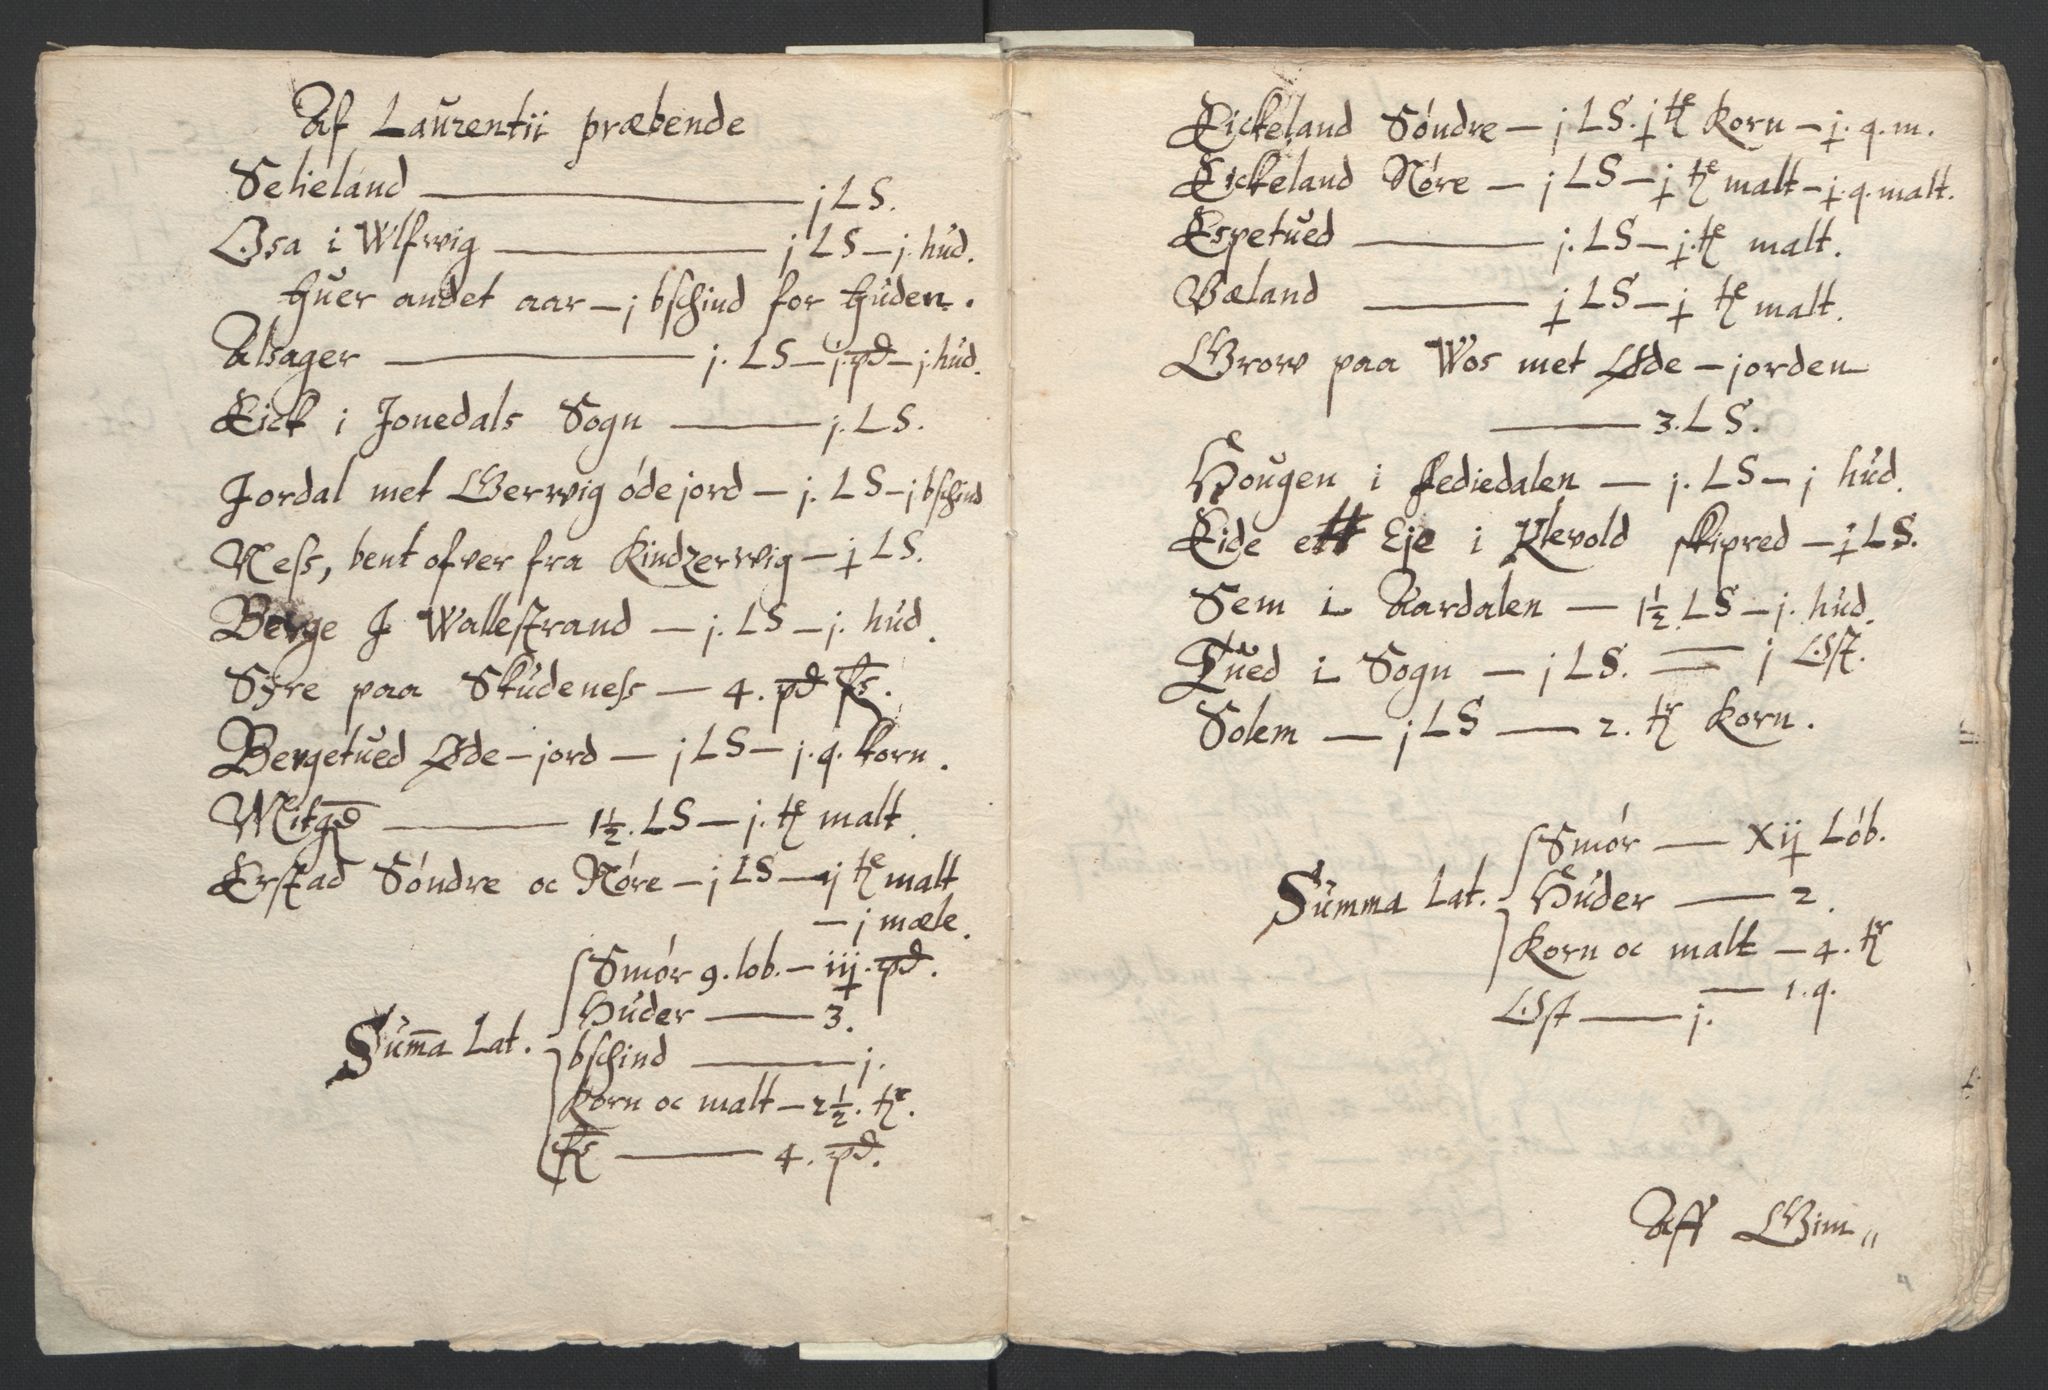 Af Laurentii præbende
Selieland — j LS.
Osa i Wlfwig — j LS — j. hud.
huer andet aar — j bschind for huden.
Alsager — j. LS — j. pd — j. hud.
Eick i Jonedals Sogn — j. LS.
Jordal met Gerwig ódejord — j. LS — j bschind
Ness, bent ofver fra Kindzerwig — ɉ LS.
Berge J Wallestrand — j. LS — j. hud.
Syre paa Skudeness — 4. pd fs.
Bergetued Øde-jord — j LS — j. q. korn.
Mitgd — 1½. LS — j. tr malt.
Erstad Sóndre oc Nóre — j LS — j tr malt
— j mæle.
Smór 9. lob. — iiɉ. pd.
Huder — 3.
Summa Lat.
bschind — j.
Korn oc malt — 2½. tr.
fs — 4. pd.
Eickeland Sóndre — j LS. ɉ tr Korn — ɉ. q. m.
Eickeland Nóre — j LS — ɉ tr malt — ɉ. q. malt.
Espetued — j. LS — ɉ. tr malt.
Bæland — ɉ LS — ɉ tr malt.
Grow paa Wos met Øde-jorden
— 3. LS.
Hougen i fediedalen — j. LS — j hud.
Eide ett Eje i Klevold skipred — ɉ LS.
Sem i Aardalen — 1½ LS — j. hud.
Tued i Sogn — j LS. — j Ost.
Solem — j LS — 2. tr Korn.
Smór — Xiɉ Lób.
Summa Lat. Huder — 2.
Korn oc malt — 4. tr
— 1. q.
Ost — j.
Aff Gim„
4